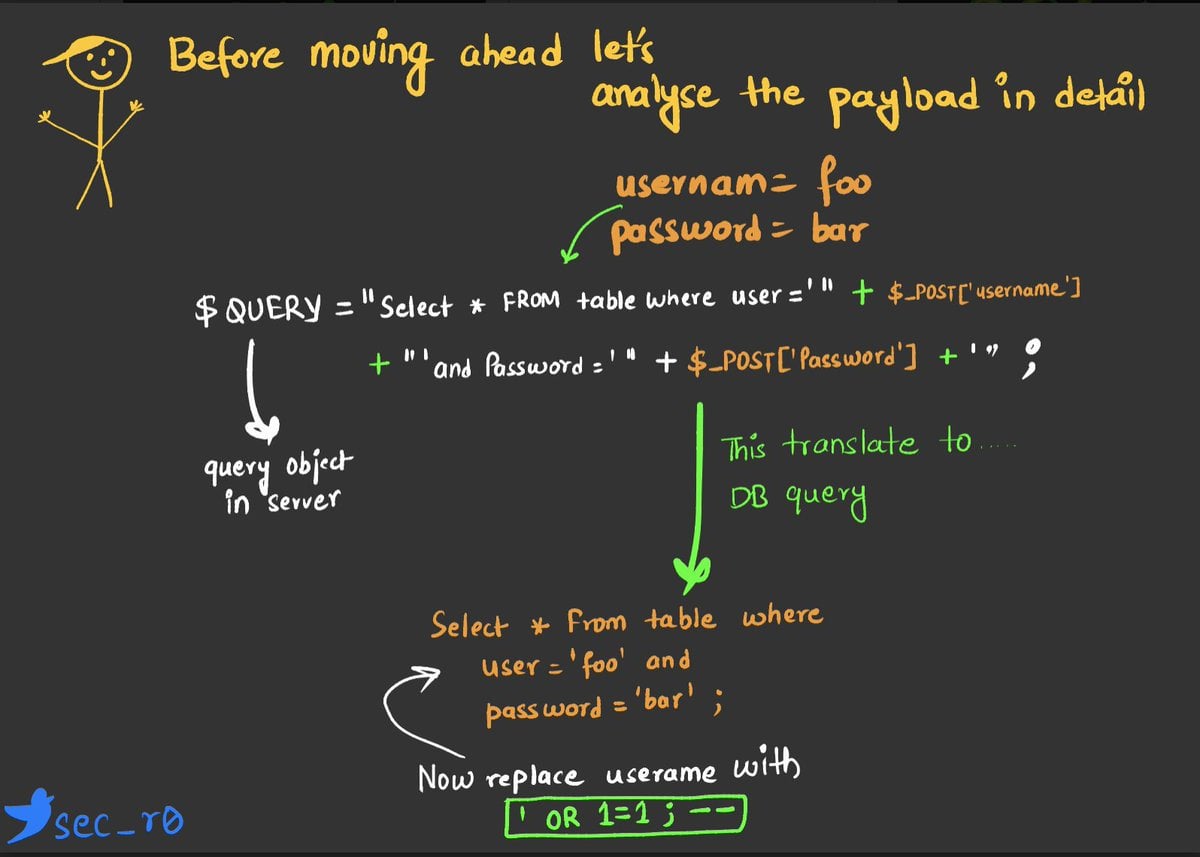 Before moving ahead let's
analyse the payload in detail
usernam= foo
password = bar
$ QUERY = "Select * FROM table where user ='" + $_POST['username']
+ "' and Password ='" + $_POST['Password'] + '" ;
query object
in server
This translate to.....
DB query
Select * From table where
user = 'foo' and
password = 'bar' ;
Now replace userame with
' OR 1=1 ; --
sec_r0